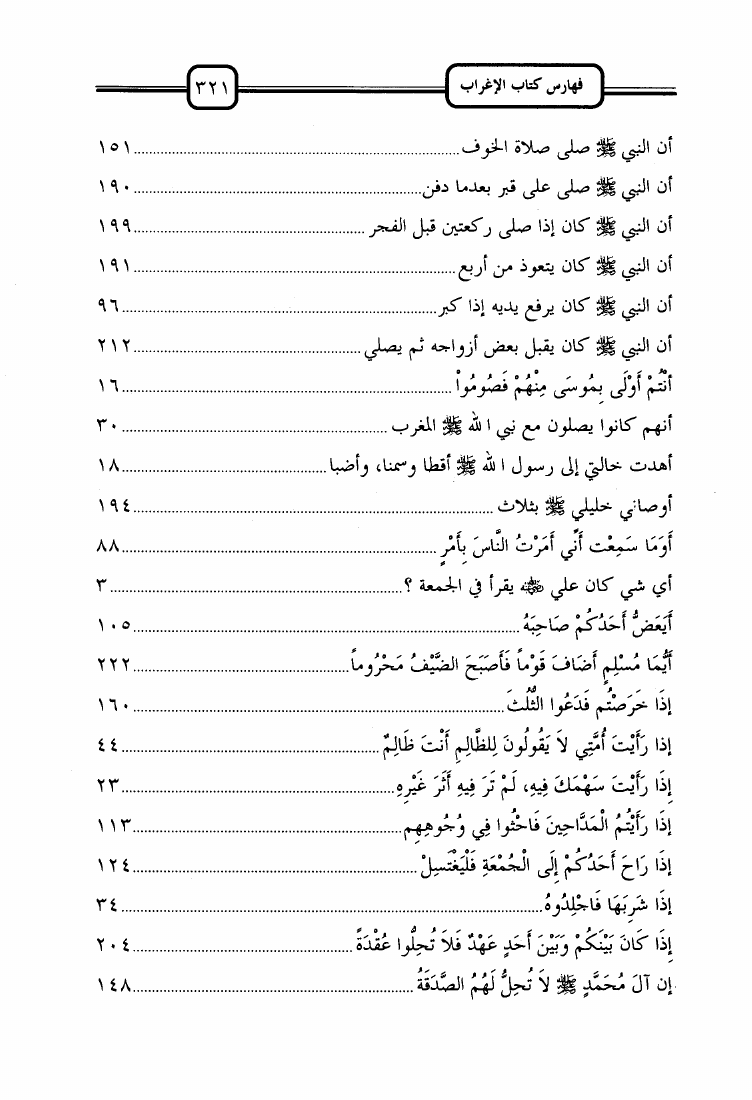 فهارس كتاب الإغراب ٣٢١
أن النبي ﷺ صلى صلاة الخوف ١٥١
أن النبي ﷺ صلى على قبر بعدما دفن ١٩٠
أن النبي ﷺ كان إذا صلى ركعتين قبل الفجر ١٩٩
أن النبي ﷺ كان يتعوذ من أربع ١٩١
أن النبي ﷺ كان يرفع يديه إذا كبر ٩٦
أن النبي ﷺ كان يقبل بعض أزواجه ثم يصلي ٢١٢
أَنْتُمْ أَوْلَى بِمُوسَى مِنْهُمْ فَصُومُواْ ١٦
أنهم كانوا يصلون مع نبي الله ﷺ المغرب ٣٠
أهدت خالتي إلى رسول الله ﷺ أقطا وسمنا، وأضبا ١٨
أوصاني خليلي ﷺ بثلاث ١٩٤
أَوَمَا سَمِعْت أَنِّي أَمَرْتُ النَّاسَ بِأَمْرٍ ٨٨
أي شي كان علي ﷺ يقرأ في الجمعة ؟ ٣
أَيَعَضُّ أَحَدُكُمْ صَاحِبَهُ ١٠٥
أَيُّمَا مُسْلِمٍ أَضَافَ قَوْماً فَأَصَبَحَ الضَّيْفُ مَحْرُوماً ٢٢٢
إِذَا خَرَصْتُم فَدَعُوا الثُّلُثَ ١٦٠
إذا رَأَيْت أُمَّتِي لاَ يَقُولُونَ لِلظَّالِمِ أَنْتَ ظَالِمٌ ٤٤
إِذَا رَأَيْت سَهْمَكَ فِيهِ، لَمْ تَرَ فِيهِ أَثَرَ غَيْرِهِ ٢٣
إِذَا رَأَيْتُمُ الْمَدَّاحِينَ فَاحْثُوا فِي وُجُوهِهِم ١١٣
إِذَا رَاحَ أَحَدُكُمْ إِلَى الْجُمْعَةِ فَلْيَغْتَسِلْ ١٢٤
إِذَا شَرِبَهَا فَاجْلِدُوهُ ٣٤
إِذَا كَانَ بَيْنَكُمْ وَبَيْنَ أَحَدٍ عَهْدٌ فَلاَ تُحِلُّوا عُقْدَةً ٢٠٤
إن آلَ مُحَمَّدٍ ﷺ لاَ تُحِلُّ لَهُمُ الصَّدَقَةُ ١٤٨